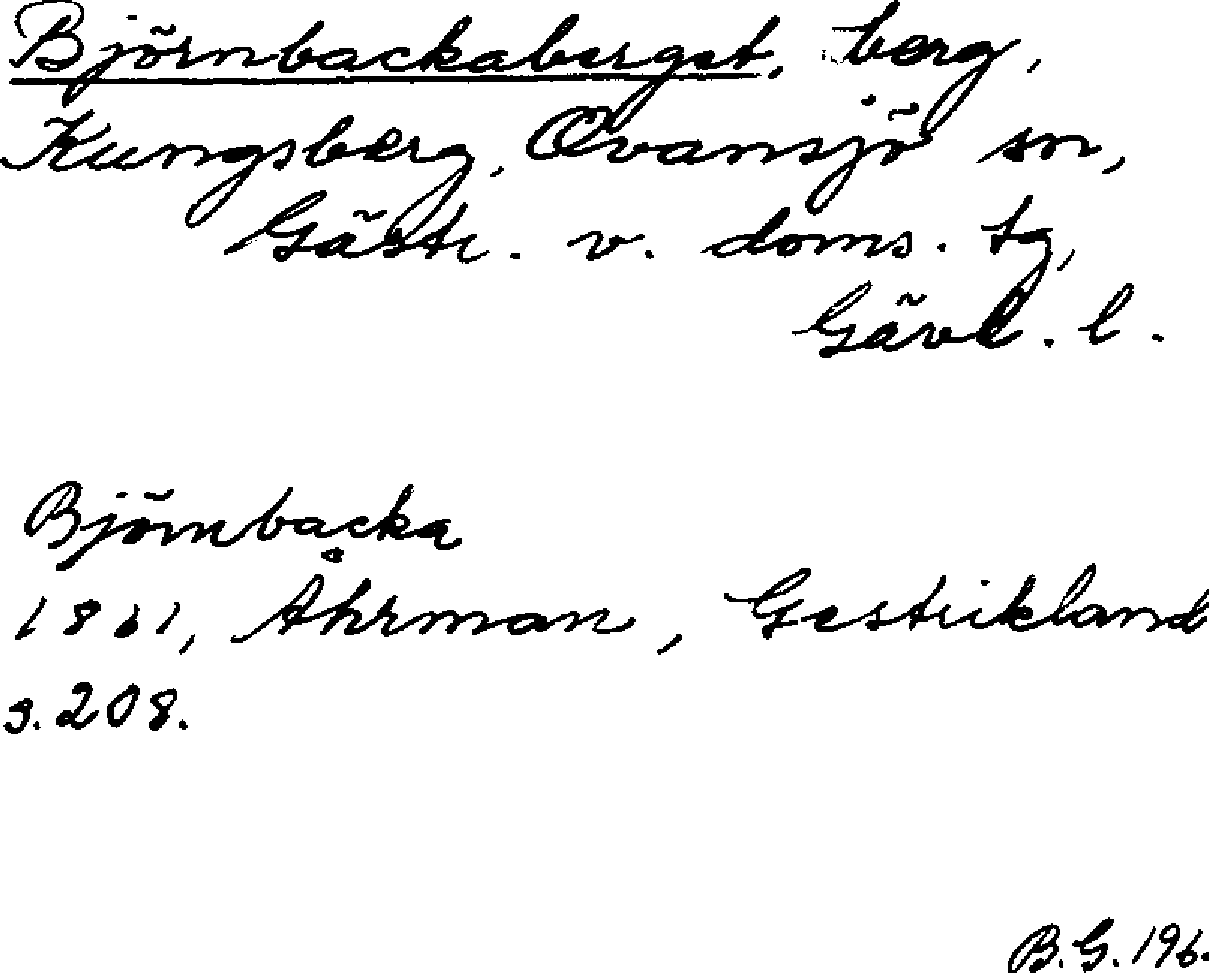 Björnbackaberget, berg,
Kungsberg, Ovansjö sn,
Gästr. v. doms. tg,
Gävl. l.
Björnbacka
1861, Åhrman, Gestrikland
s. 208.
B.G. 196.